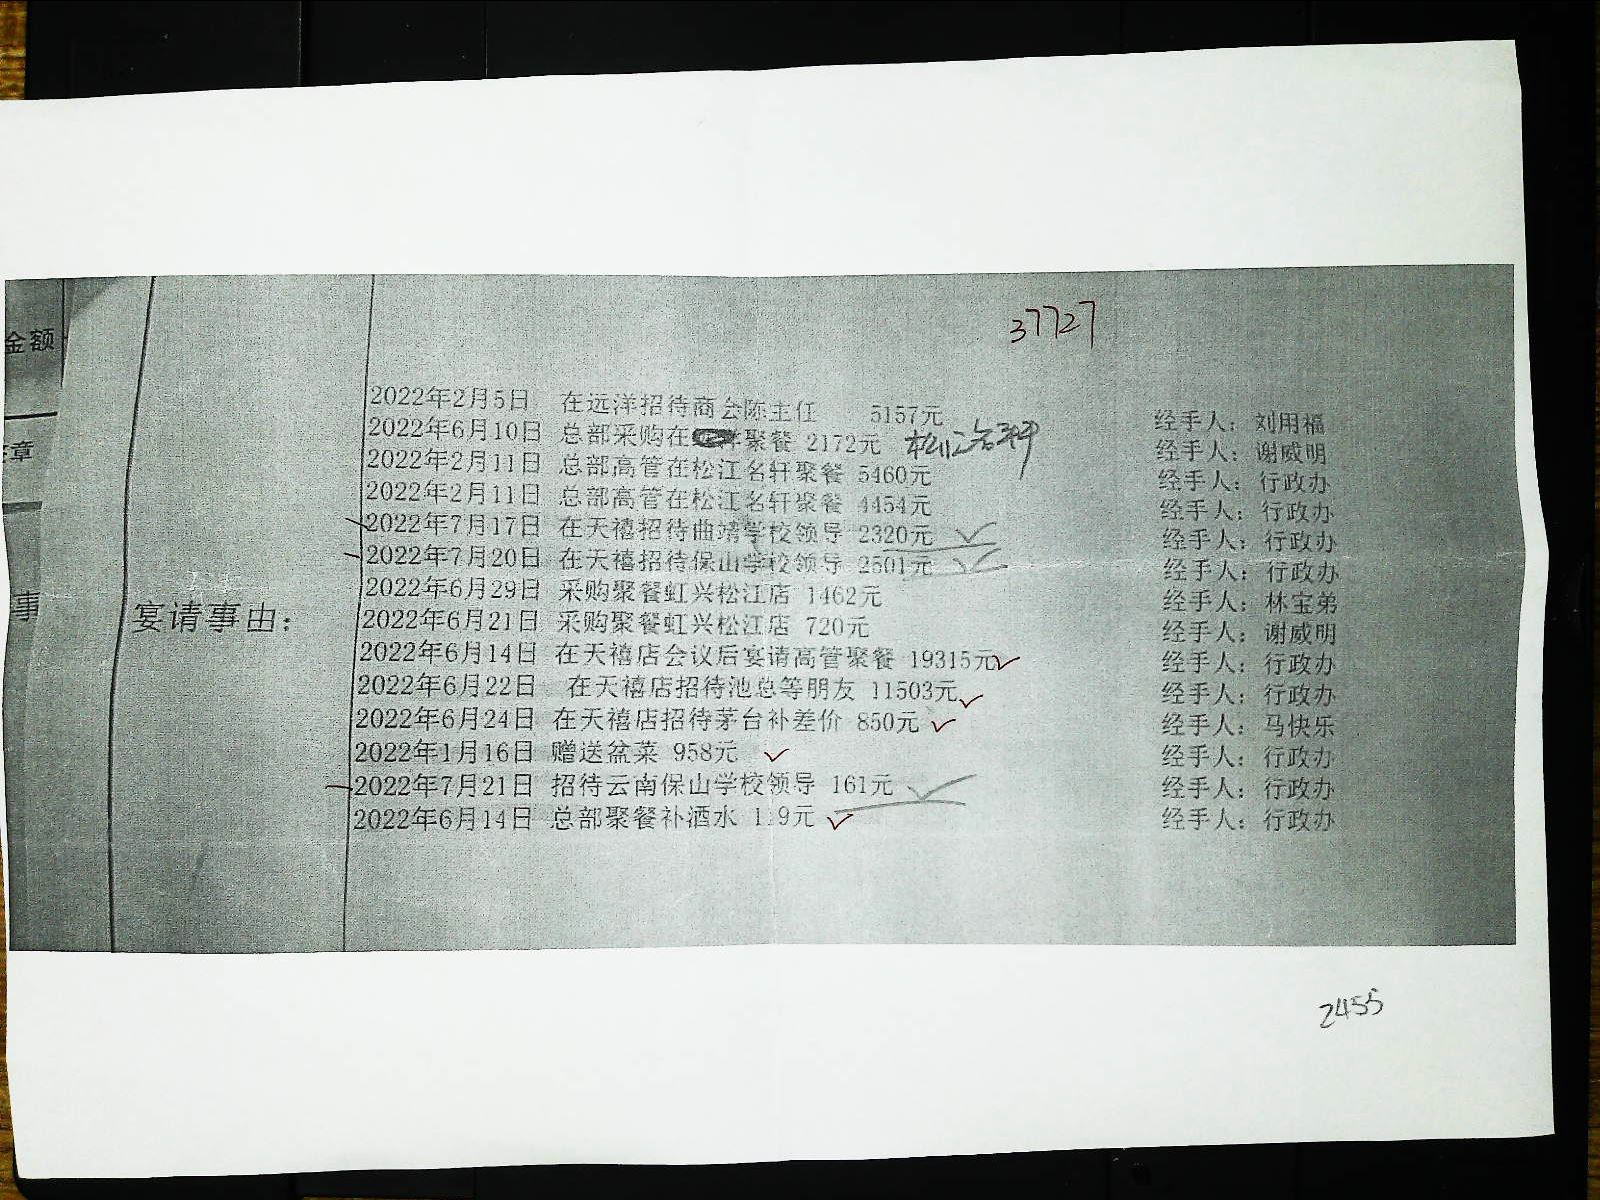 37727
金额
2022年2月5日 在远洋招待商会陈主任 5157元 经手人：刘用福
2022年6月10日 总部采购在聚餐 2172元 松江名轩 经手人：谢威明
章
2022年2月11日 总部高管在松江名轩聚餐 5460元 经手人：行政办
2022年2月11日 总部高管在松江名轩聚餐 4454元 经手人：行政办
2022年7月17日 在天禧招待曲靖学校领导 2320元 经手人：行政办
2022年7月20日 在天禧招待保山学校领导 2501元 经手人：行政办
2022年6月29日 采购聚餐虹兴松江店 1462元 经手人：林宝弟
事
宴请事由：
2022年6月21日 采购聚餐虹兴松江店 720元 经手人：谢威明
2022年6月14日 在天禧店会议后宴请高管聚餐 19315元 经手人：行政办
2022年6月22日 在天禧店招待池总等朋友 11503元 经手人：行政办
2022年6月24日 在天禧店招待茅台补差价 850元 经手人：马快乐
2022年1月16日 赠送盆菜 958元 经手人：行政办
2022年7月21日 招待云南保山学校领导 161元 经手人：行政办
2022年6月14日 总部聚餐补酒水 经手人：行政办
2455